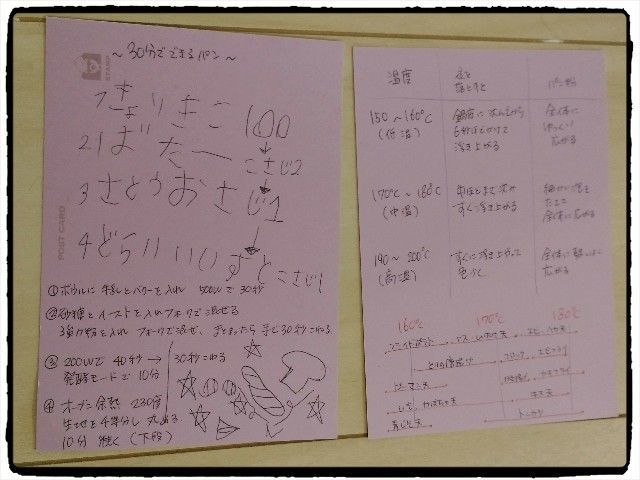 STAMP
POST CARD
～30分でできるパン～
1 きょうりきこ 100
2 ばたー こさじ2
3 さとう おさじ1
4 どらいいーすと こさじ1
①ボウルに 牛乳とバターを入れ 500Wで30秒
②砂糖とイーストを入れフォークで混ぜる
3強力粉を入れ フォークで混ぜ、まとまったら 手で30秒こねる
③200Wで 40秒→ 30秒こねる
発酵モードで 10分
④オーブン余熱 230度
生地を4等分し 丸める
10分 焼く（下段）
温度 衣を落とすと パン粉
150～160℃（低温） 鍋底に沈んでから 浮き上がる 全体にゆっくり広がる
170℃～180℃（中温） 中ほどまで沈み すぐ浮き上がる 細かい泡をたてて 全体に広がる
190～200℃（高温） すぐに浮き上がって色づく 全体に 広がる
160℃ 170℃ 180℃
フライドポテト
とりの唐揚げ
コロッケ エビフライ
カキフライ
ピーマン天
いも、かぼちゃ天
トンカツ